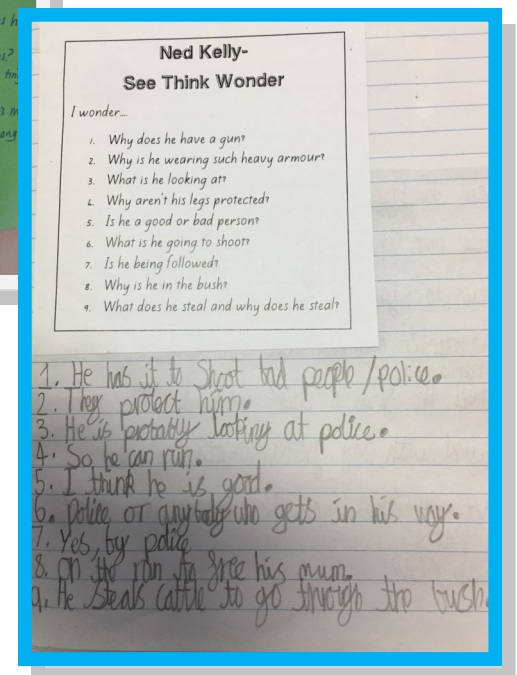 Ned Kelly-
See Think Wonder
I wonder....
1. Why does he have a gun?
2. Why is he wearing such heavy armour?
3. What is he looking at?
4. Why aren't his legs protected?
5. Is he a good or bad person?
6. What is he going to shoot?
7. Is he being followed?
8. Why is he in the bush?
9. What does he steal and why does he steal?
1. He has it to Shoot bad people/police.
2. They protect him.
3. He is probably looking at police.
4. So he can run.
5. I think he is good.
6. Police or anybody who gets in his way.
7. Yes, by police
8. On the run to free his mum.
9. He Steals cattle to go through the bush.